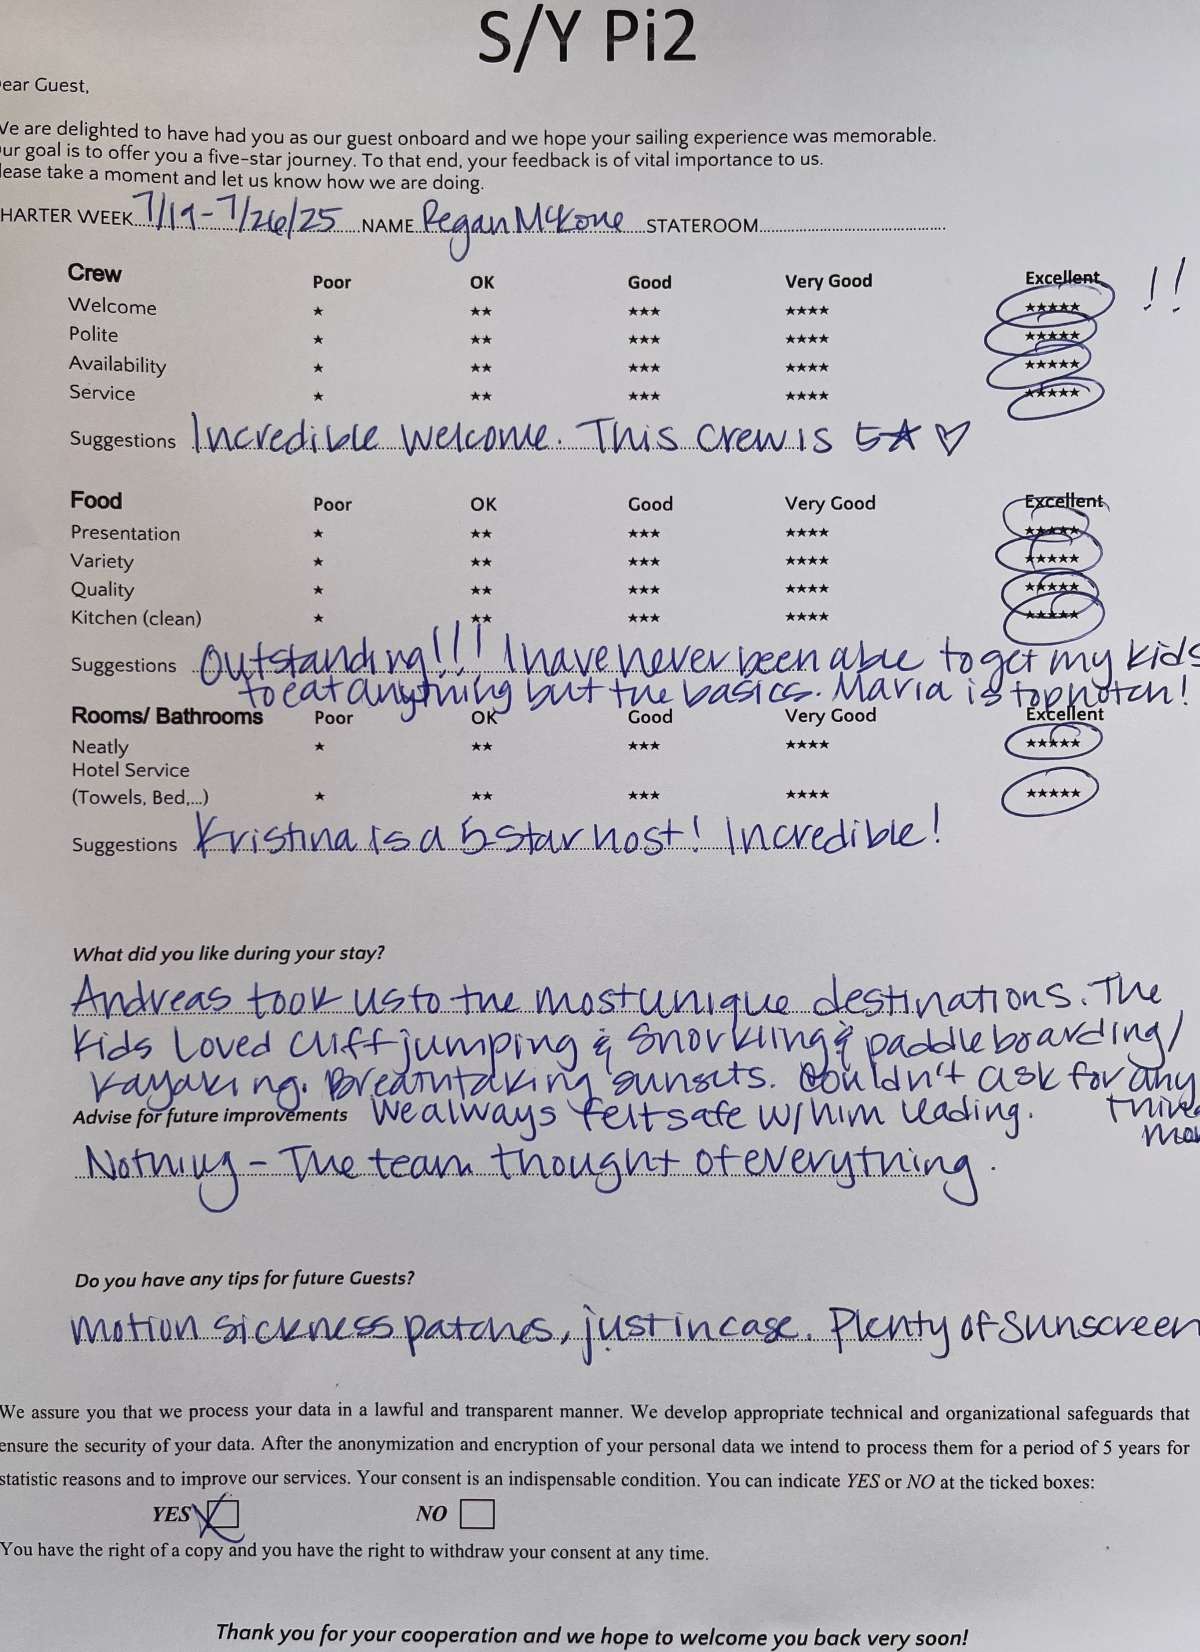 S/Y Pi2
ear Guest,
We are delighted to have had you as our guest onboard and we hope your sailing experience was memorable.
ur goal is to offer you a five-star journey. To that end, your feedback is of vital importance to us.
lease take a moment and let us know how we are doing.
HARTER WEEK 7/19-7/26/25 NAME Regan McKone STATEROOM
Crew Poor OK Good Very Good Excellent !!
Welcome ★ ★★ ★★★ ★★★★ ★★★★★
Polite ★ ★★ ★★★ ★★★★ ★★★★★
Availability ★ ★★ ★★★ ★★★★ ★★★★★
Service ★ ★★ ★★★ ★★★★ ★★★★★
Suggestions Incredible Welcome. This Crew is 5★ ♡
Food Poor OK Good Very Good Excellent
Presentation ★ ★★ ★★★ ★★★★ ★★★★★
Variety ★ ★★ ★★★ ★★★★ ★★★★★
Quality ★ ★★ ★★★ ★★★★ ★★★★★
Kitchen (clean) ★ ★★ ★★★ ★★★★ ★★★★★
Suggestions Outstanding!!! I have never been able to get my kids
to eat anything but the basics. Maria is top notch!
Rooms/ Bathrooms Poor OK Good Very Good Excellent
Neatly ★ ★★ ★★★ ★★★★ ★★★★★
Hotel Service
(Towels, Bed,...) ★ ★★ ★★★ ★★★★ ★★★★★
Suggestions Kristina is a 5 star host! Incredible!
What did you like during your stay?
Andreas took us to the most unique destinations. The
kids loved cliff jumping & snorkling & paddle boarding/
kayaking. Breathtaking sunsets. Couldn't ask for any
Advise for future improvements We always felt safe w/ him leading.
Nothing - The team thought of everything.
Do you have any tips for future Guests?
motion sickness patches, just in case. Plenty of sunscreen
We assure you that we process your data in a lawful and transparent manner. We develop appropriate technical and organizational safeguards that
ensure the security of your data. After the anonymization and encryption of your personal data we intend to process them for a period of 5 years for
statistic reasons and to improve our services. Your consent is an indispensable condition. You can indicate YES or NO at the ticked boxes:
YES X NO
You have the right of a copy and you have the right to withdraw your consent at any time.
Thank you for your cooperation and we hope to welcome you back very soon!